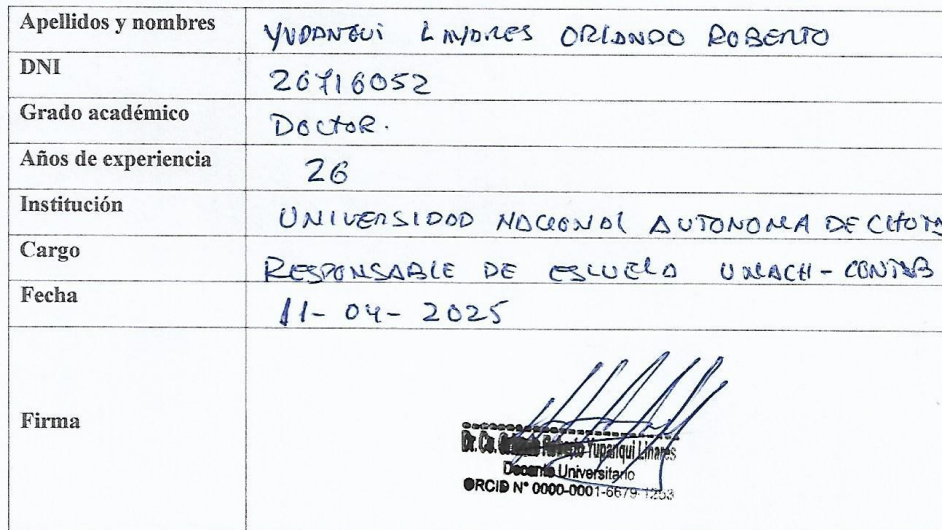 Apellidos y nombres YUPANQUI LINARES ORLANDO ROBERTO
DNI 26716052
Grado académico DOCTOR.
Años de experiencia 26
Institución UNIVERSIDAD NACIONAL AUTONOMA DE CHOTA
Cargo RESPONSABLE DE ESCUELA UNACH - CONTAB
Fecha 11-04-2025
Firma
Dr. Roberto Yupanqui Linares
Docente Universitario
ORCID N° 0000-0001-6679-1253